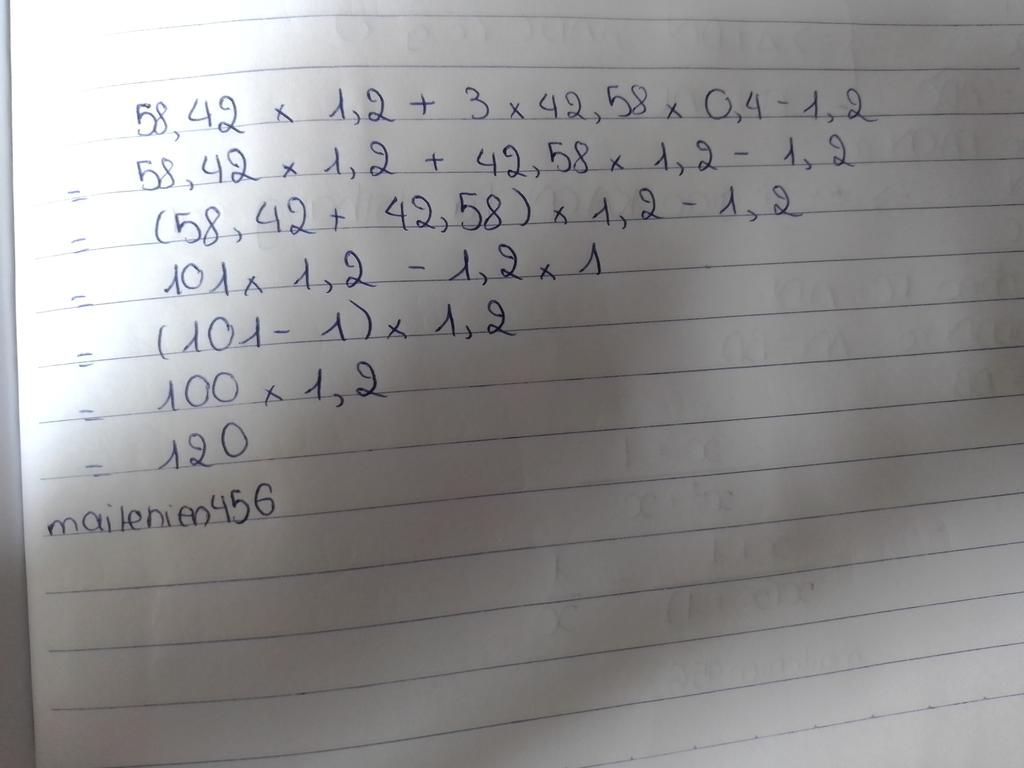 58,42 x 1,2 + 3 x 42,58 x 0,4 - 1,2
= 58,42 x 1,2 + 42,58 x 1,2 - 1,2
= (58,42 + 42,58) x 1,2 - 1,2
= 101 x 1,2 - 1,2 x 1
= (101 - 1) x 1,2
= 100 x 1,2
= 120
mailenien456